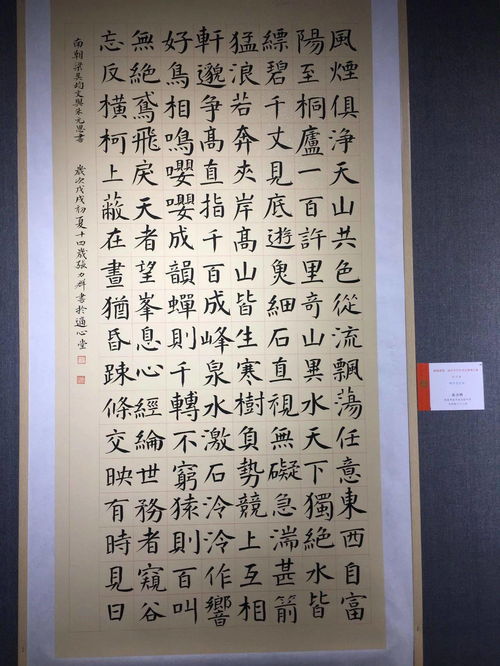 風煙俱淨天山共色從流飄蕩任意東西自富
陽至桐廬一百許里奇山異水天下獨絕水皆
縹碧千丈見底遊魚細石直視無礙急湍甚箭
猛浪若奔夾岸髙山皆生寒樹負勢競上互相
軒邈爭髙直指千百成峰泉水激石泠泠作響
好鳥相鳴嚶嚶成韻蟬則千轉不窮猿則百叫
無絕鳶飛戾天者望峯息心經綸世務者窺谷
忘反橫柯上蔽在晝猶昏踈條交映有時見日
南朝梁吳均文與朱元思書 歲次戊戌初夏十四歲張力群書於通心堂